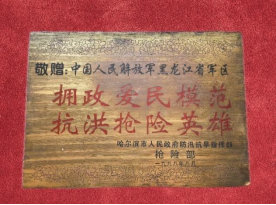 敬赠：中国人民解放军黑龙江省军区
拥政爱民模范
抗洪抢险英雄
哈尔滨市人民政府防汛抗旱指挥部
抢险部
一九八八年八月